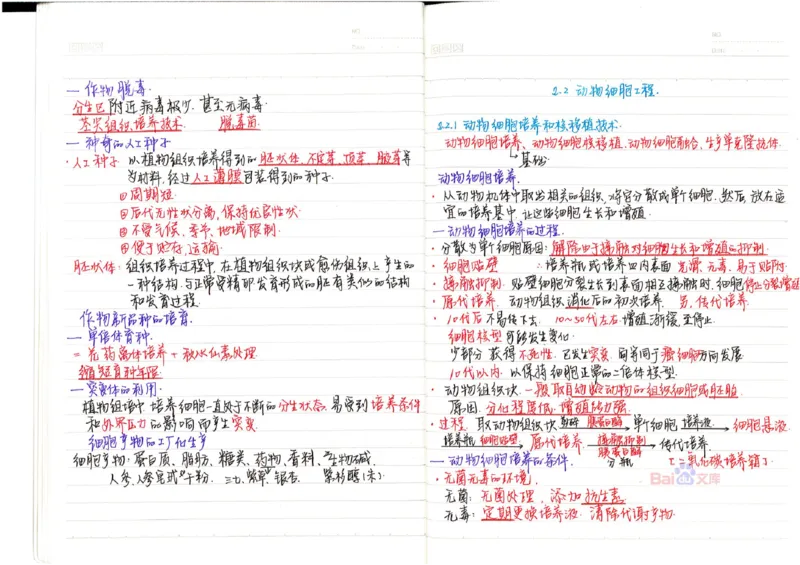 一 作物脱毒.
分生区附近病毒极少.甚至无病毒.
茎尖组织培养技术. 脱毒苗.
一 神奇的人工种子
·人工种子 以植物组织培养得到的胚状体、不定芽、顶芽、腋芽等
为材料,经过人工薄膜包装得到的种子.
①周期短.
②后代无性状分离,保持优良性状.
③不受气候、季节、地域限制.
④便于贮存,运输.
胚状体:组织培养过程中,在植物组织块或愈伤组织上产生的
一种结构,与正常受精卵发育形成的胚有类似的结构
和发育过程.
作物新品种的培育.
一 单倍体育种.
= 花药离体培养 + 秋水仙素处理.
缩短育种年限.
一 突变体的利用.
植物组培中 培养细胞一直处于不断的分生状态.易受到培养条件
和外界压力的影响而产生突变.
细胞产物的工厂化生产
细胞产物:蛋白质、脂肪、糖类、药物、香料、生物碱.
人参、 三七、紫草、银杏.
1.2 动物细胞工程.
1.2.1 动物细胞培养和核移植技术.
动物细胞培养、动物细胞核移植、动物细胞融合、生产单克隆抗体.
基础
动物细胞培养.
·从动物机体中取出相关的组织,将它分散成单个细胞.然后,放在适
宜的培养基中,让这些细胞生长和增殖.
一 动物细胞培养的过程.
·分散为单个细胞原因:解除由于接触对细胞生长和增殖的抑制.
·细胞贴壁 ∴培养瓶或培养皿内表面 光滑、无毒、易于贴附.
·接触抑制. 贴壁细胞分裂生长到表面相互接触时,细胞停止分裂增殖
·原代培养. 动物组织消化后的初次培养. 另、传代培养.
·10代后不易传下去. 10~50代左右 增殖渐缓至停止.
细胞核型可能发生变化.
少部分 获得不死性.已发生突变.向等同于癌细胞方向发展.
10代以内,以保持细胞正常的二倍体核型.
·动物组织块.一般取自幼龄动物的组织细胞或胚胎
原因.分化程度低,增殖能力强.
·过程. 取动物组织块 剪碎 胰蛋白酶 → 单个细胞 培养液 → 细胞悬液.
培养瓶 细胞贴壁 → 原代培养 接触抑制 胰蛋白酶 分瓶 → 传代培养.
一 动物细胞培养的条件. 二氧化碳培养箱
·无菌无毒的环境.
无菌:无菌处理、添加抗生素
无毒:定期更换培养液.清除代谢产物.
Bai 文库